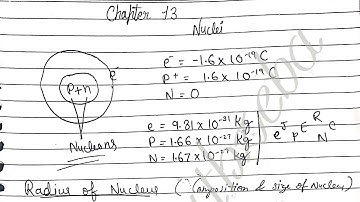 Chapter 13
Nuclei
e⁻
P+n
Nucleons
e⁻ = -1.6 x 10⁻¹⁹ C
P⁺ = 1.6 x 10⁻¹⁹ C
N = 0
e = 9.81 x 10⁻³¹ kg
P = 1.66 x 10⁻²⁷ kg
N = 1.67 x 10⁻²⁷ kg
e J P E R N C
Radius of Nucleus (Composition & size of Nucleus)